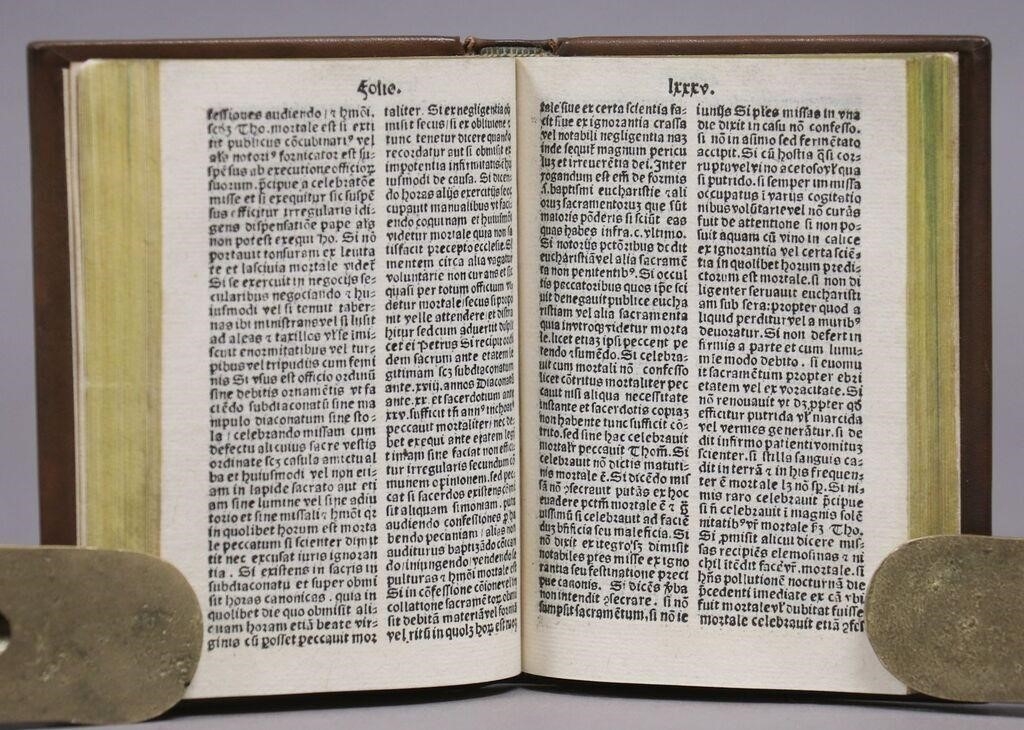 Folio.
fessiones audiendo / ⁊ hm̄oi.
scꝫ Tho. mortale est si exti
tit publicus cōcubinariꝰ vel
als notoriꝰ fornicator est su-
spēsus ab executione officioꝝ
suorum. p̄cipue a celebratōe
misse et si exequitur sic suspē
sus efficitur irregularis idi-
gens dispensatiōe pape als
non potest exequi Tho. Si nō
portauit tonsuram ex leuita
te et lasciuia mortale videt᷑
Si se exercuit in negocijs se-
cularibus negociando ⁊ hu-
iusmodi vel si tenuit taber-
nas ibi ministrans vel si lusit
ad aleas ⁊ taxillos vl̓ se imi-
scuit enormitatibus vel tur-
pibus vel tripudijs cum femi
nis Si vsus est officio ordinū
sine debitis ornamētis vt fa
ciēdo subdiaconatū sine ma
nipulo diaconatum sine sto-
la / celebrando missam cum
defectu alicuius sacre vestis
ordinate scꝫ casula amictu al
ba et huiusmodi vel non eti-
am in lapide sacrato aut eti
am sine lumine vel sine adiu
torio et sine missali ⁊ hm̄oi qr̄
in quolibet horum est morta
le peccatum si scienter dimit
tit nec excusat iuris ignoran
tia. Si existens in sacris in
subdiaconatu et super obmi
sit horas canonicas. quia in
quolibet die quo obmisit ali-
cuam horam etiā beate vir-
ginis cū posset peccauit mor
taliter. Si ex negligentia ob
misit secus / si ex obliuione ⁊
tunc tenetur dicere quando
recordatur aut si obmisit ex
impotentia infirmitatis hu
iusmodi de causa. Si dicen-
do horas alijs exercitijs se oc
cupauit manualibus vt faci
endo coquinam et huiusmōi
videtur mortale quia non sa
tisfacit precepto ecclesie. Si
mentem circa alia vagatur
voluntarie non curans et sic
quasi per totum officium vi-
detur mortale / secus si propo
nit velle attendere / et distra
hitur sed cum aduertit displi
cet ei Petrus Si recipit ordi
dem sacrum ante etatem le
gitimam scꝫ subdiaconatum
ante .xviij. annos Diaconatū
ante .xx. et sacerdotium ante
xxv. sufficit tn̄ annꝰ inchoatꝰ
peccauit mortaliter / nec de-
bet exequi ante etatem legi
timam sine faciat non effici-
tur irregularis secundum cō
munem opinionem. sed pec-
cat si sacerdos existens cōmi
sit aliquam simoniam. puta
audiendo confessiones ꝓ ha
bendo pecuniam / alias non
auditurus baptizādo cōican
do / iniungendo / vendendo se
pulturas ⁊ hm̄oi mortale est
Si in cōfessione cōione vel in
collatione sacramētoꝝ obmi
sit debitā materiā vel formā
vel ritū in quolꝫ hoꝝ est mor
lxxxv.
tale siue ex certa scientia fa-
cit siue ex ignorantia crassa
vel notabili negligentia nā
inde sequit᷑ magnum pericu
luꝫ et irreuerētia dei. Inter
rogandum est em̄ de formis
.s. baptismi eucharistie ⁊ ali
oruꝫ sacramentoruꝫ que sūt
maioris pōderis si sciūt eas
quas habes infra. c. vltimo.
Si notorijs pctōribus dedit
eucharistiā vel alia sacramē
ta non penitentibꝰ. Si occul
tis peccatoribus quos ip̄e sci
uit denegauit publice eucha
ristiam vel alia sacramenta
quia in vtroqꝫ videtur morta
le. licet etiaꝫ ipsi peccent pe
tendo ⁊ sumēdo. Si celebra-
uit cum mortali nō confesso
licet cōtritus mortaliter pec
cauit nisi aliqua necessitate
instante et sacerdotis copiaꝫ
non habente tunc sufficit cō-
trito. sed sine hac celebrauit
mortalr̄ peccauit Thom̄. Si
celebrauit nō dictis matuti-
nis mortale ē. Si dicēdo mis
sā nō ↄsecrauit putās ex hoc
euadere pctm̄ mortale ē ⁊ g̑
uissimū si celebrauit ad facie
duꝫ bn̄ficia seu maleficia. Si
nō dixit ex tegroꝰꝫ dimisit
notabiles ꝑtes misse ex igno
rantia seu festinatione prect
pue canonis. Si dicēs ꝟba
non intendit ↄsecrare. si nō
sumpsit sacramētum, si nō ie
iunijs Si pl̓es missas in vna
die dixit in casu nō confesso.
si nō in asimo sed fermētato
accipit. Si cū hostia q̄si cor-
rupta vel vino acetoso vl̓ qua
si putrido. si semper in missa
occupatus ī varijs cogitatio
nibus volūtarie vel nō curās
fuit de attentione si non po-
suit aquam cū vino in calice
ex ignorantia vel certa sciē-
tia in quolibet horum predi-
ctorum est mortale. si non di
ligenter seruauit eucharisti
am sub sera: propter quod a
liquid perditur vel a muribꝰ
deuoratur. Si non defert in
firmis a parte et cum lumi-
ne le modo debito. si euomu
it sacramētum propter ebri
etatem vel ex voracitate. Si
nō renouauit vt dꝫ. ꝓpter qd̓
efficitur putrida vl̓ marcida
vel vermes generātur. si de
dit infirmo patienti vomituꝫ
scienter. si stilla sanguis ca-
dit in terrā ⁊ in his frequen-
ter ē mortale lꝫ nō sꝑ. Si ni-
mis raro celebrauit p̄cipue
si n̄ celebrauit ī magnis solē
nitatibꝰ vr̄ mortale sꝫ Tho.
Si ꝓmisit alicui dicere mis-
sas recipiēs elemosinas ⁊ ni
chil itēdit facēr̄. mortale. si
hn̄s pollutionē nocturnā die
p̄cedenti imediate ex cā vl̓ bi
fuit mortale vl̓ dubitat fuisse
mortale celebrauit etiā ↄfes